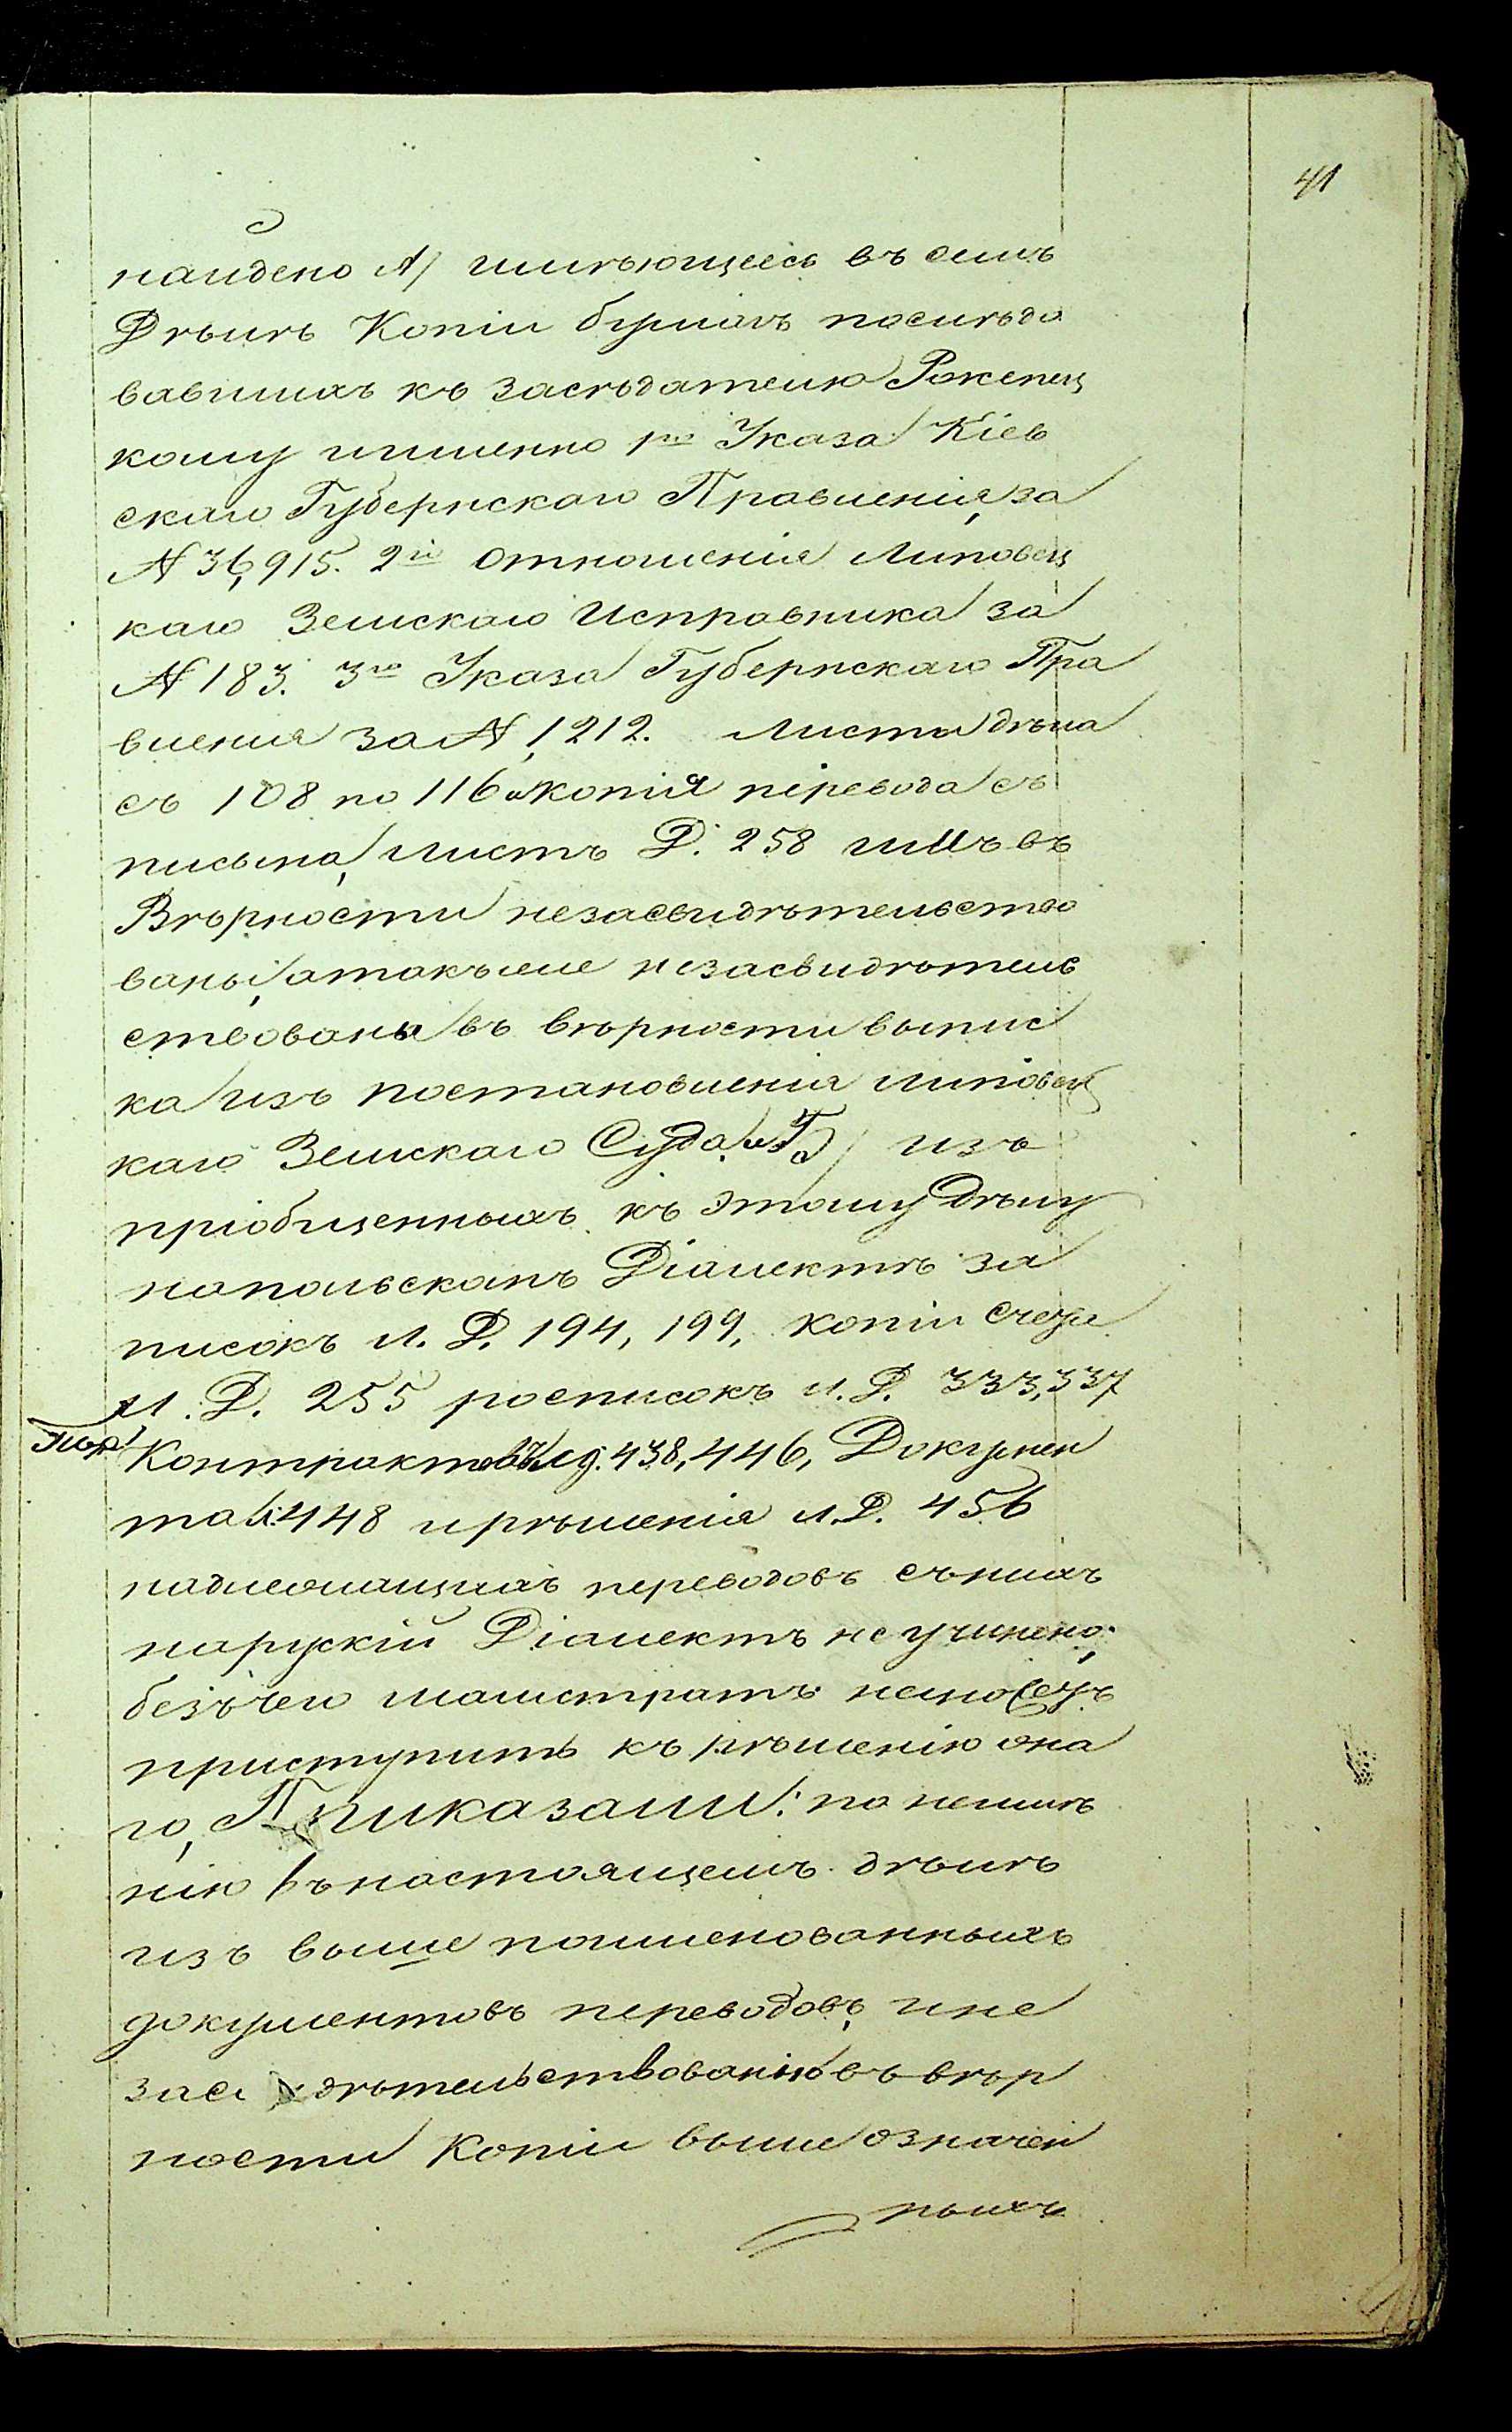 41
найдено А/ имѣющееся въ семъ
Дѣлѣ Копіи бумагъ послѣдо
вавшихъ къ засѣдателю Рокепец
кому именно 1го Указа Кіев
скаго Губернскаго Правленія, за
№ 36,915. 2го отношенія Липовец
каго Земскаго Исправника за
№ 183. 3го Указа Губернскаго Пра
вленія за № 1,212. Листы дѣла
съ 108 по 116 и копія перевода съ
письма, листъ Д. 258 въ
Вѣрности незасвидѣтельство
ваны, атакъже незасвидѣтель
ствована въ вѣрности выпис
ка изъ постановленія Липовец
каго Земскаго Суда. и Б/ изъ
пріобщенныхъ къ этому Дѣлу
напольскомъ Діалектѣ за
писокъ л. Д. 194, 199, копіи счета
л. Д. 255 росписокъ л. Д. 333, 337
Контрактовъ л. д. 438, 446, Докумен
та л. 448 и рѣшенія л. Д. 456
надлежащихъ переводовъ съ нихъ
нарускій Діалектъ не учинено;
безъ чего магистратъ неможетъ
приступить къ рѣшенію она
го, Приказали: по неимѣ
нію въ настоящемъ дѣлѣ
изъ выше поименованныхъ
документовъ переводовъ, и не
засвидѣтельствованію въ вѣр
ности Копіи выше означен
ныхъ